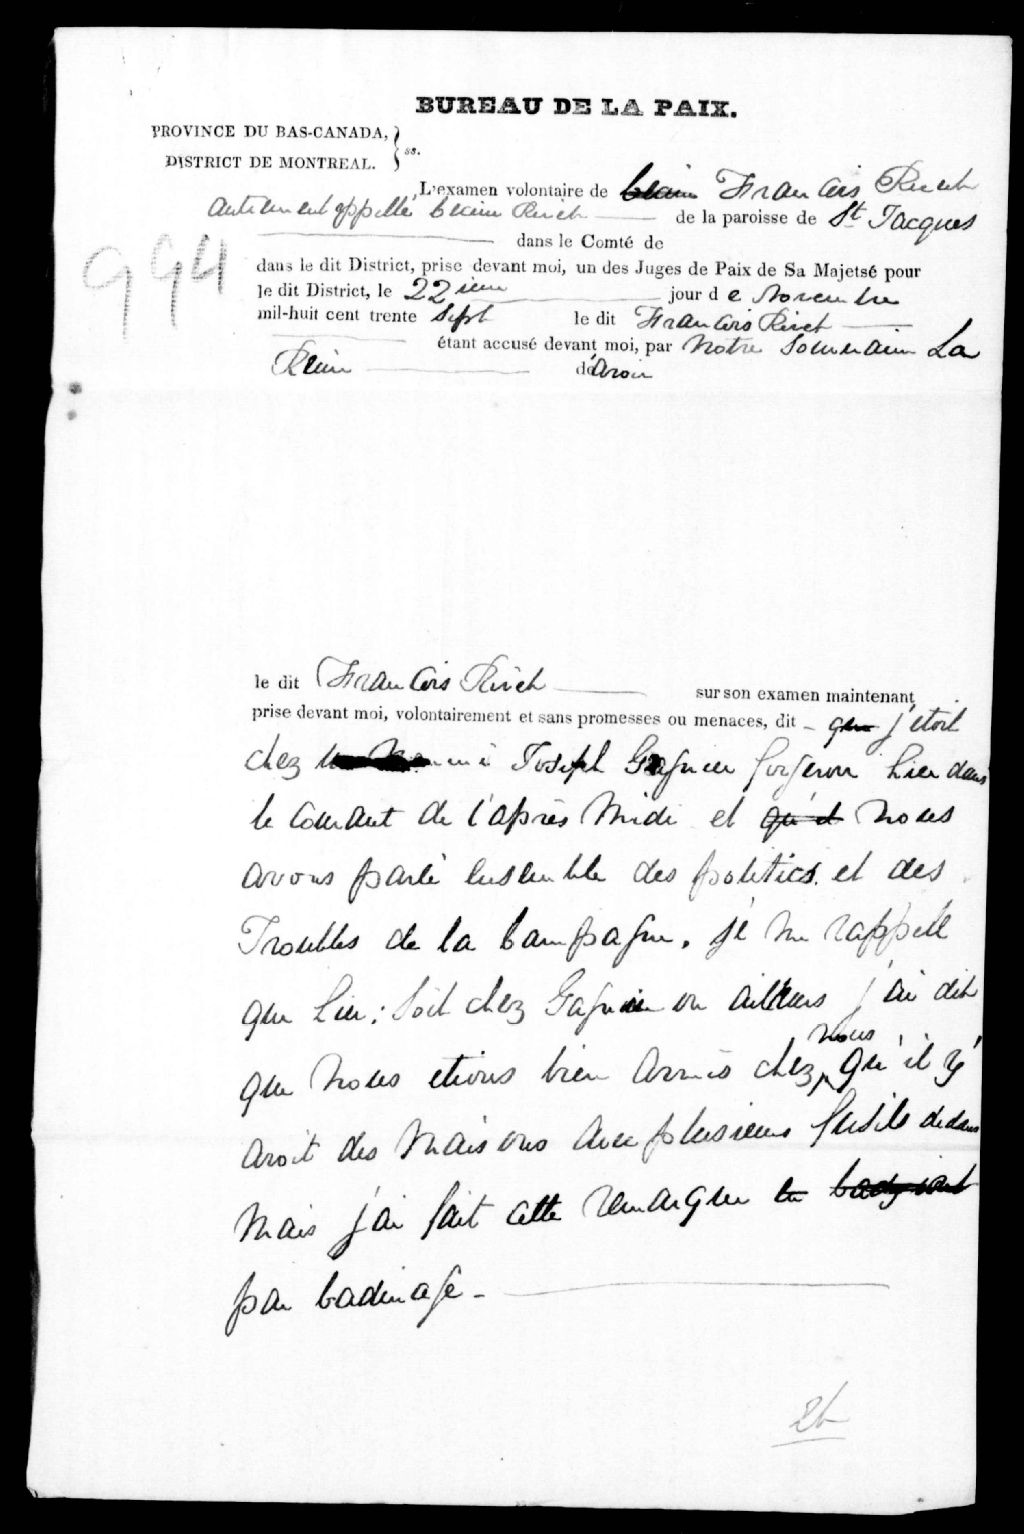 BUREAU DE LA PAIX.
PROVINCE DU BAS-CANADA,
DISTRICT DE MONTREAL. } ss.
L'examen volontaire de François Rivet
autrement appellé Rivet de la paroisse de St. Jacques
dans le Comté de
994
dans le dit District, prise devant moi, un des Juges de Paix de Sa Majetsé pour
le dit District, le 22 ieme jour d e Novembre
mil-huit cent trente Sept le dit François Rivet
étant accusé devant moi, par Notre Souveraine La
Reine d'avoir
le dit François Rivet sur son examen maintenant
prise devant moi, volontairement et sans promesses ou menaces, dit - que j'étoit
chez Joseph Gagnier forgeron hier dans
le Courant de l'après Midi et qu'il nous
avons parlé ensemble des politics et des
Troubles de la Campagne. je me rappelle
que hier; Soit chez Gagnier ou ailleurs j'ai dit
que nous etions bien armés chez nous qu'il y
avoit des Maisons avec plusieurs fusils dedans
Mais j'ai fait cette remarque en badinant
par badinage -
26